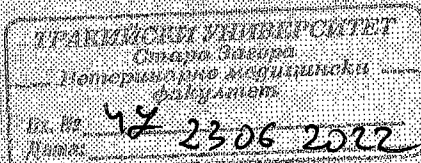 ТРАКИЙСКИ УНИВЕРСИТЕТ
Стара Загора
Ветеринарно медицински
факултет
Вх. №
Дата: 23 06 2022